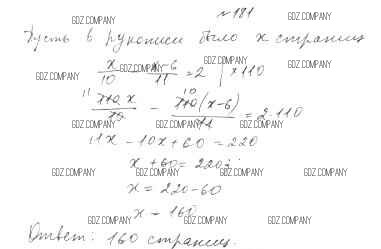 № 181
Пусть в рукописи было x страниц
x/10 - x-6/11 = 2 | × 110
11 110 x/10 - 10 110(x-6)/11 = 2·110
11x - 10x + 60 = 220
x + 60 = 220;
x = 220 - 60
x = 160
Ответ: 160 страниц.
GDZ.COMPANY GDZ.COMPANY
GDZ.COMPANY GDZ.COMPANY
GDZ.COMPANY GDZ.COMPANY
GDZ.COMPANY GDZ.COMPANY GDZ.COMPANY GDZ.COMPANY
GDZ.COMPANY GDZ.COMPANY